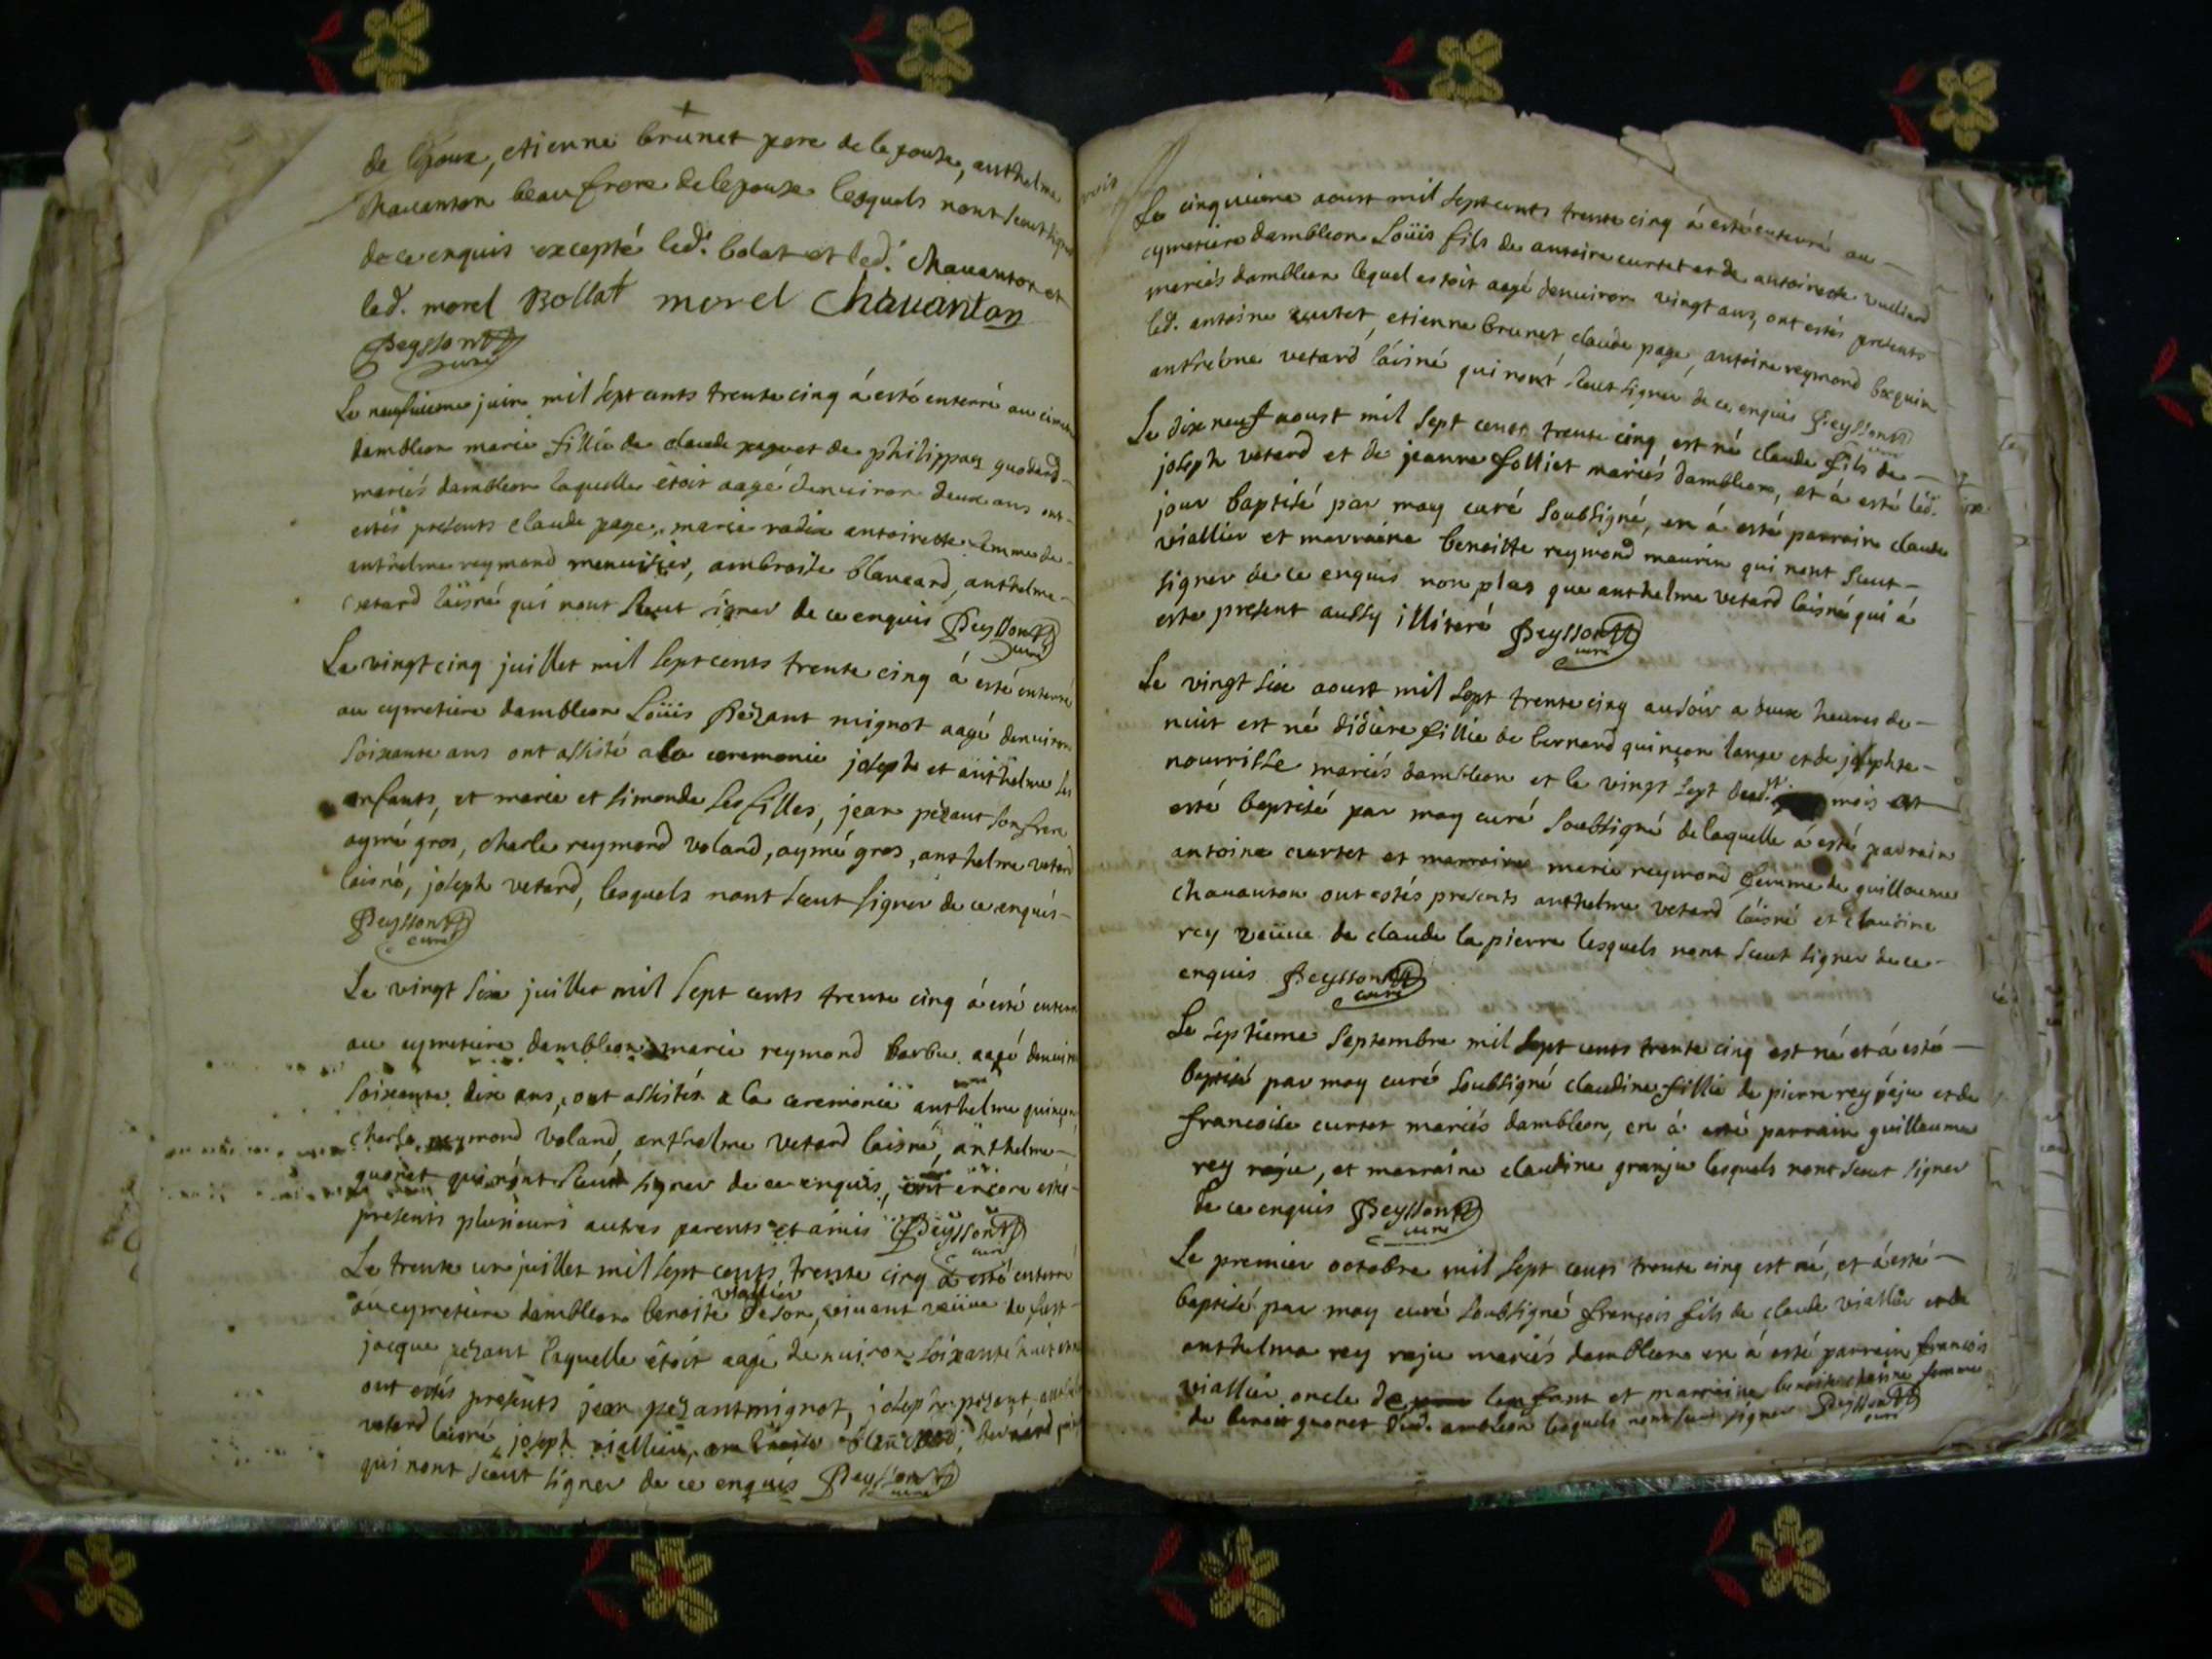 de lepoux, etienne brunet pere de lepouse, anthelme
chavanton beau frere de lepouse lesquels nont sceut signer
de ce enquis excepté led. bolat et led. chavanton et
led. morel Bollat morel Chavanton
Peysson
curé
Le neufvieme juin mil sept cents trente cinq á esté enterré au
dambleon marie fillie de claude page et de philippaz
mariés dambleon laquelle étoit aagé denviron deux ans ont
estés presents claude page, marie radix antoinette femme de
anthelme reymond menuisier, ambroise blancard, anthelme
vetard láisné qui nont sceut signer de ce enquis Peysson
curé
Le vingt cinq juillet mil sept cents trente cinq á esté enterré
au cymetiere dambleon Loüis Pezant mignot aagé denviron
soixante ans ont assisté a la ceremonie joseph et anthelme ses
enfants, et marie et simonde ses filles, jean pezant son frere
aymé gros, charle reymond voland, aymé gros, anthelme vetard
laisné, joseph vetard, lesquels nont sceut signer de ce enquis
Peysson
curé
Le vingt six juillet mil sept cents trente cinq á esté enterré
au cymetiere dambleon marie reymond barbu aagé denviron
soixante dix ans, ont assistés a la ceremonie anthelme quinçon
charle reymond voland, anthelme vetard laisné, anthelme
guonet qui nont sceut signer de ce enquis, ont encore estés
presents plusieurs autres parents et amis Peysson
curé
Le trente un juillet mil sept cents trente cinq á esté enterré
viallier
au cymetiere dambleon benoite de son vivant veüve de fust
jacque pezant laquelle étoit aagé denviron soixante huit ans
ont estés presents jean pezant mignot, joseph pezant,
vetard laisné, joseph viallier, ambroise blancard, bernard
qui nont sceut signer de ce enquis Peysson
curé
Le cinquieme aoust mil sept cents trente cinq á esté enterré au
cymetiere dambleon Loüis fils de antoine curtet et de antoinette vuilliard
mariés dambleon lequel estoit aagé denviron vingt ans, ont estés presents
led. antoine curtet, etienne brunet claude page, antoine reymond
anthelme vetard láisné qui nont sceut signer de ce enquis Peysson
curé
Le dix neuf aoust mil sept cents trente cinq est né claude fils de
joseph vetard et de jeanne folliet mariés dambleon, et á esté led.
jour baptisé par moy curé soubsigné, en á esté parrain claude
viallier et marraine benoitte reymond maurin qui nont sceut
signer de ce enquis non plus que anthelme vetard laisné qui á
esté present aussy illiteré Peysson
curé
Le vingt six aoust mil sept trente cinq au soir a deux heures de
nuit est né didiere fillie de bernard quinçon lange et de josephte
nourrisse mariés dambleon et le vingt sept dud. mois est
esté baptisé par moy curé soubsigné de laquelle á esté parrain
antoine curtet et marraine marie reymond femme de guillaume
chavanton ont estés presents anthelme vetard láisné et claudine
rey veüve de claude la pierre lesquels nont sceut signer de ce
enquis Peysson
curé
Le septieme septembre mil sept cents trente cinq est né et á esté
baptisé par moy curé soubsigné claudine fillie de pierre rey péju et de
francoise curtet mariés dambleon, en á esté parrain guillaume
rey, et marraine claudine granju lesquels nont sceut signer
de ce enquis Peysson
curé
Le premier octobre mil sept cents trente cinq est né, et á esté
baptisé par moy curé soubsigné françois fils de claude viallier et de
anthelma rey mariés dambleon en á esté parrain francois
viallier oncle de lenfant et marraine benoite femme
de benoit guonet dud. ambleon lesquels nont sceut signer Peysson
curé